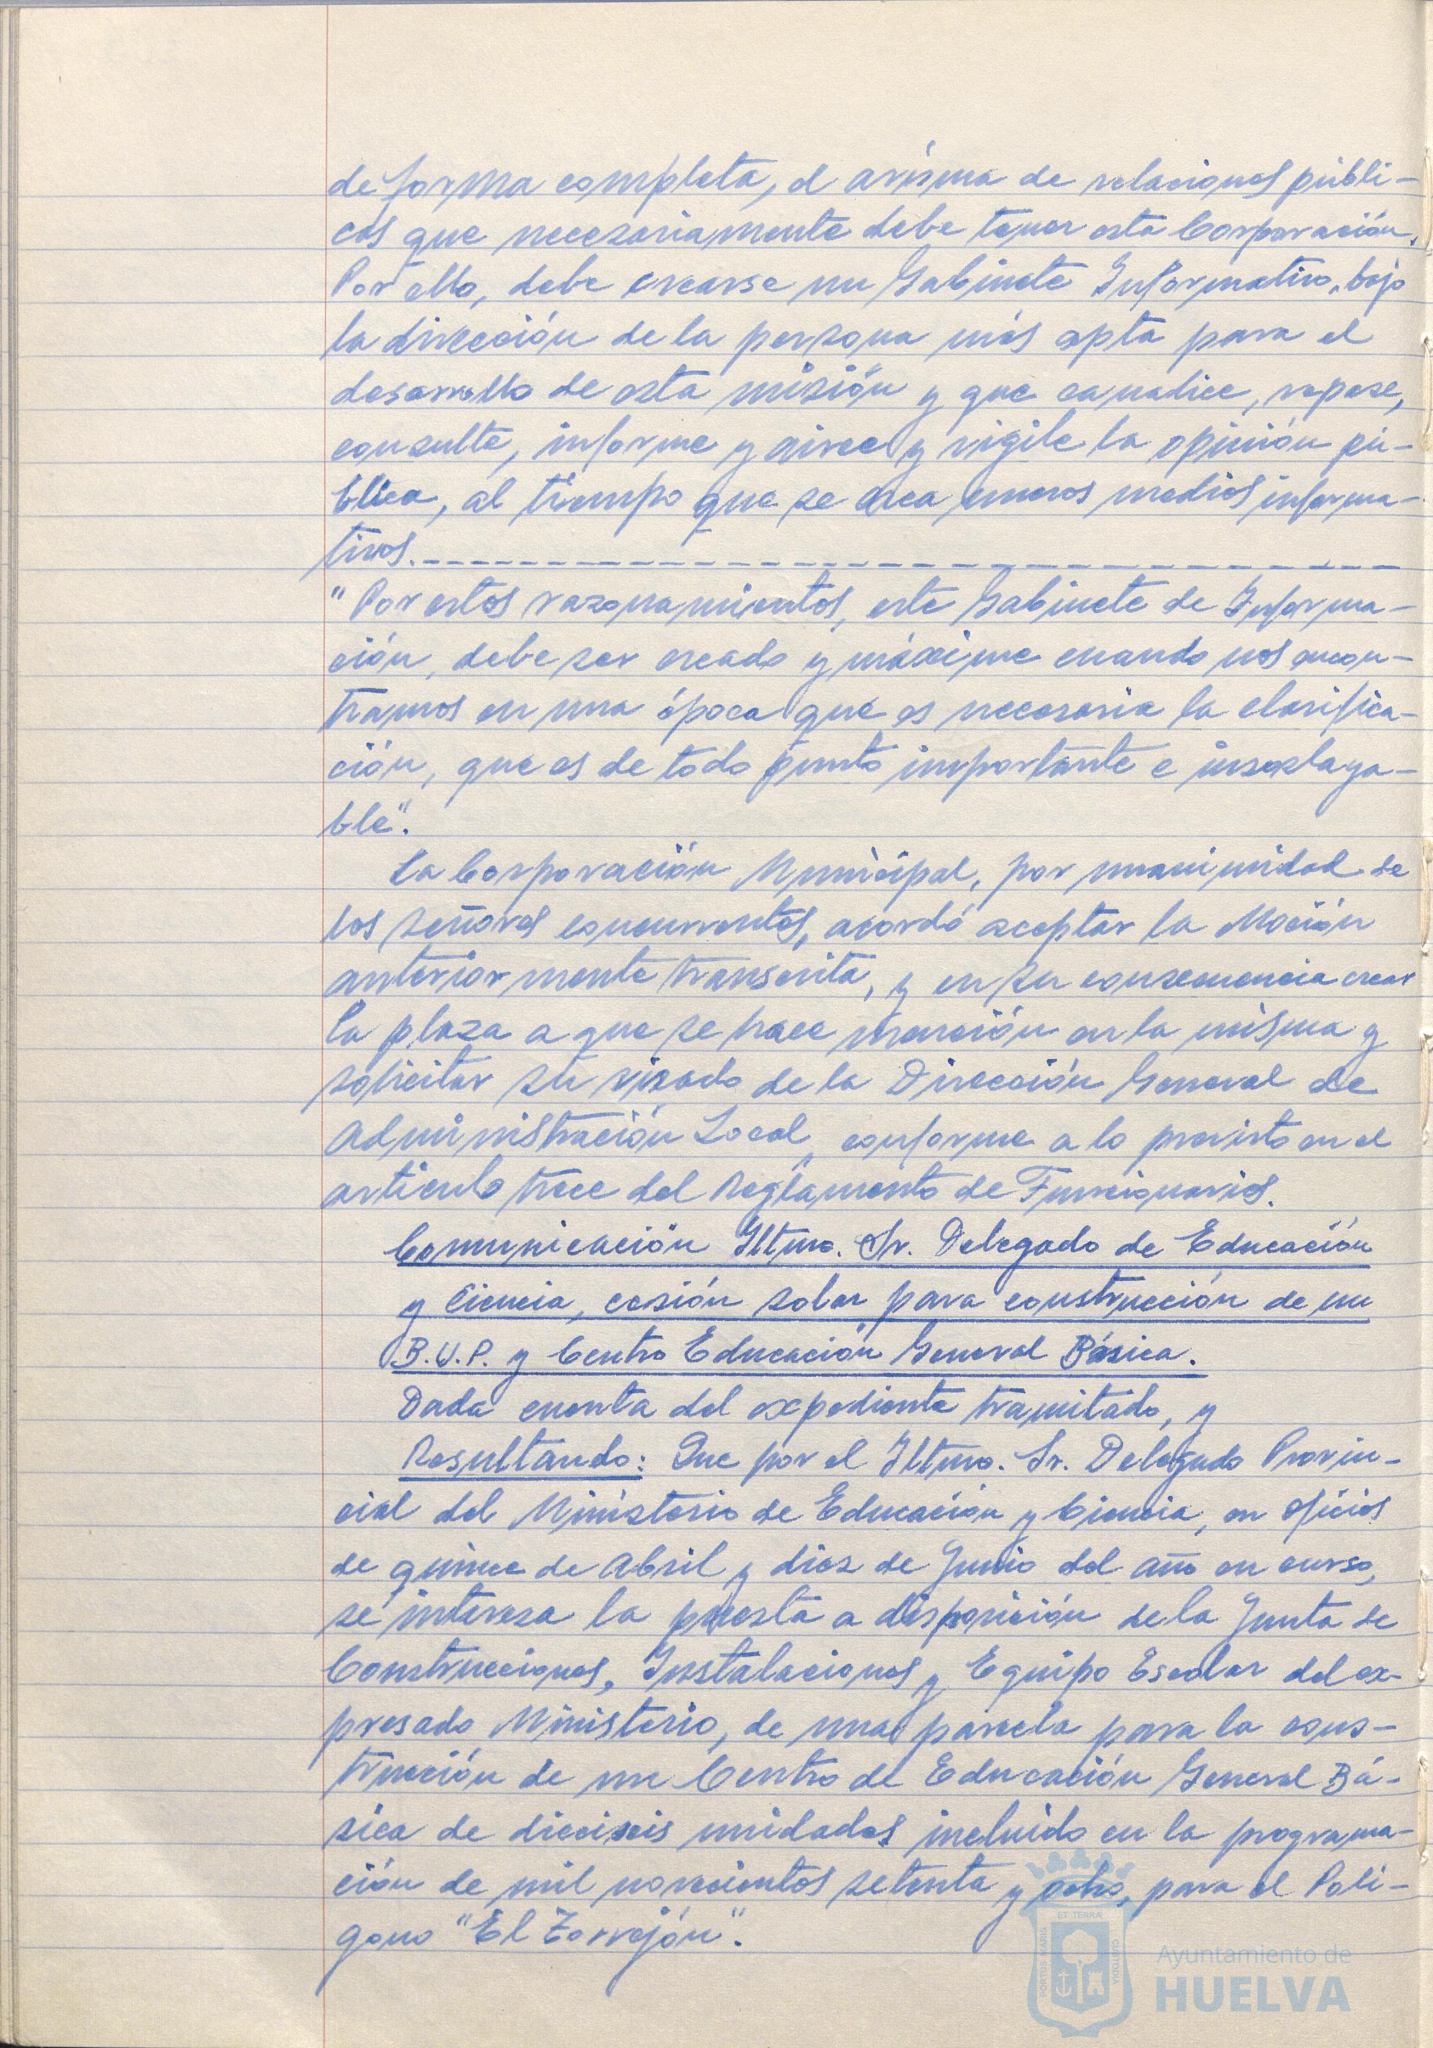 de forma completa, el arisma de relaciones públi-
cas que necesariamente debe tener esta Corporación.
Por ello, debe crearse un Gabinete Informativo, bajo
la dirección de la persona más apta para el
desarrollo de esta misión y que canalice, repase,
consulte, informe y airee y vigile la opinión pú-
blica, al tiempo que se crea nuevos medios informa-
tivos.
"Por estos razonamientos, este Gabinete de Informa-
ción, debe ser creado y máxime cuando nos encon-
tramos en una época que es necesaria la clarifica-
ción, que es de todo punto importante e insoslaya-
ble".
La Corporación Municipal, por unanimidad de
los señores concurrentes, acordó aceptar la Moción
anteriormente transcrita, y en su consecuencia crear
la plaza a que se hace mención en la misma y
solicitar su visado de la Dirección General de
Administración Local, conforme a lo previsto en el
artículo trece del Reglamento de Funcionarios.
Comunicación Iltmo. Sr. Delegado de Educación
y Ciencia, cesión solar para construcción de un
B.U.P. y Centro Educación General Básica.
Dada cuenta del expediente tramitado, y
Resultando: Que por el Iltmo. Sr. Delegado Provin-
cial del Ministerio de Educación y Ciencia, en oficios
de quince de Abril y diez de Junio del año en curso,
se interesa la puesta a disposición de la Junta de
Construcciones, Instalaciones y Equipo Escolar del ex-
presado Ministerio, de una parcela para la cons-
trucción de un Centro de Educación General Bá-
sica de dieciseis unidades incluido en la programa-
ción de mil novecientos setenta y ocho, para el Polí-
gono "El Torrejón".
PORTUS MARIS ET TERRAE CUSTODIA
Ayuntamiento de
HUELVA